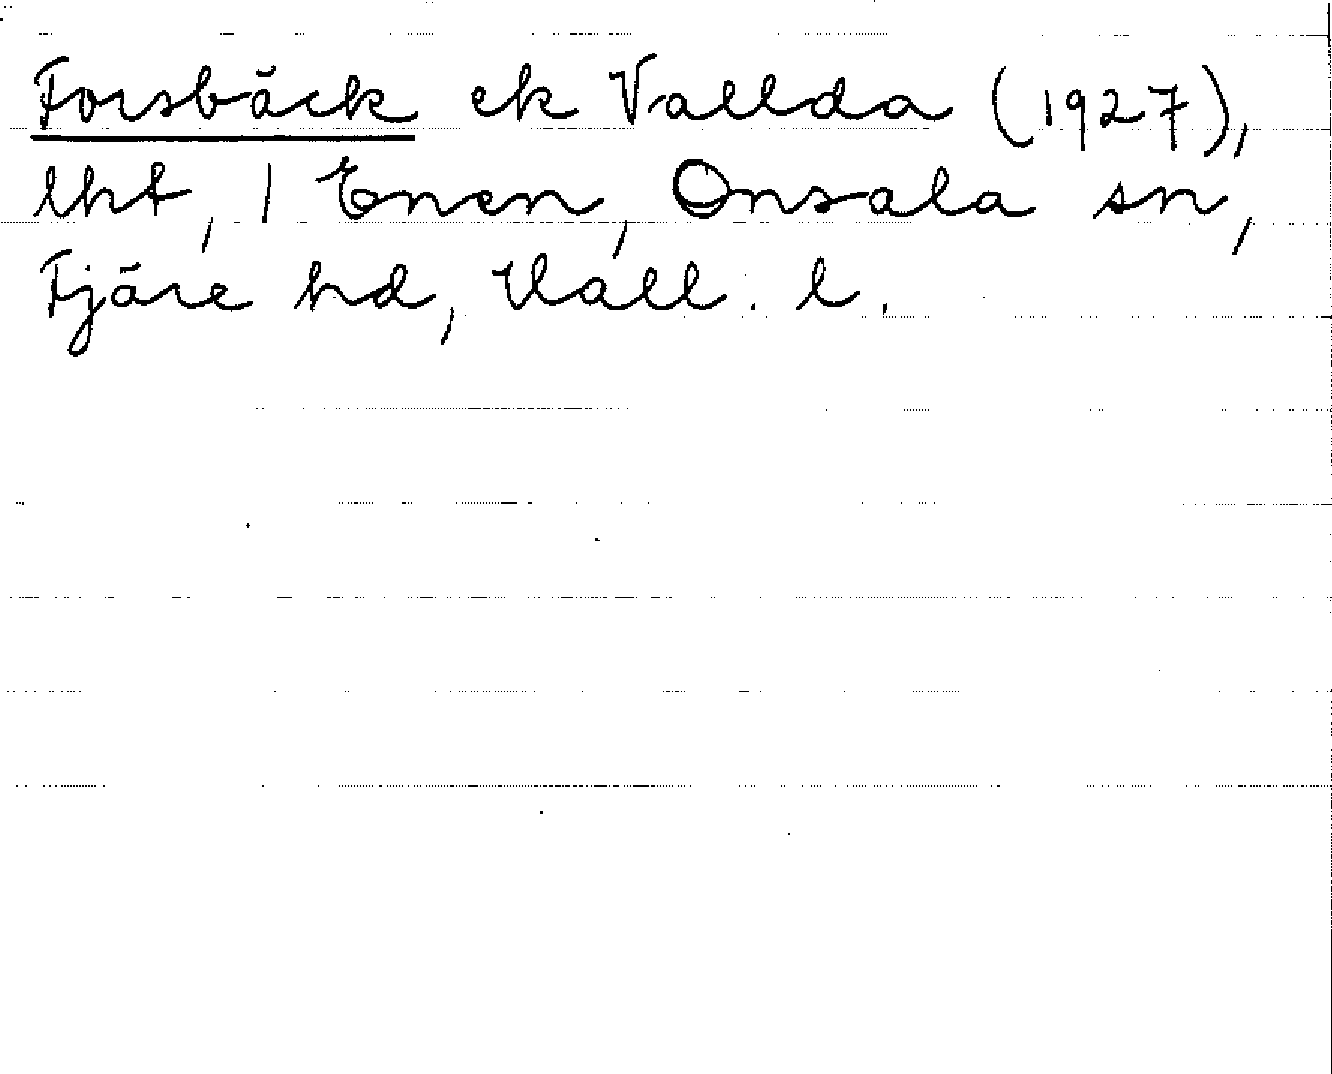 Forsbäck ek Vallda (1927),
lht, 1 Enen, Onsala sn,
Fjäre hd, Hall. l.